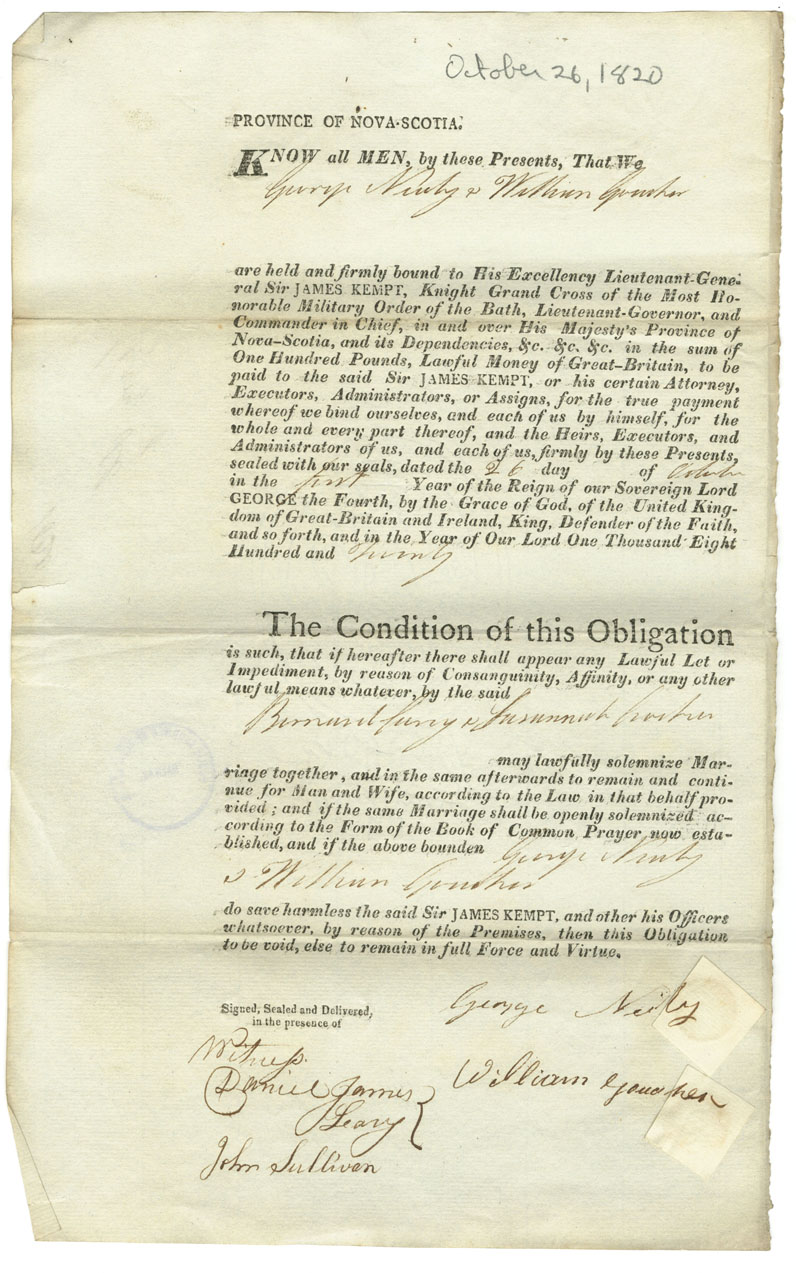 October 26, 1820
PROVINCE OF NOVA-SCOTIA.
KNOW all MEN, by these Presents, That We
George Neily & William Goucher
are held and firmly bound to His Excellency Lieutenant-Gene-
ral Sir JAMES KEMPT, Knight Grand Cross of the Most Ho-
norable Military Order of the Bath, Lieutenant-Governor, and
Commander in Chief, in and over His Majesty's Province of
Nova-Scotia, and its Dependencies, &c. &c. &c. in the sum of
One Hundred Pounds, Lawful Money of Great-Britain, to be
paid to the said Sir JAMES KEMPT, or his certain Attorney,
Executors, Administrators, or Assigns, for the true payment
whereof we bind ourselves, and each of us by himself, for the
whole and every part thereof, and the Heirs, Executors, and
Administrators of us, and each of us, firmly by these Presents,
sealed with our seals, dated the 26 day of October
in the first Year of the Reign of our Sovereign Lord
GEORGE the Fourth, by the Grace of God, of the United King-
dom of Great-Britain and Ireland, King, Defender of the Faith,
and so forth, and in the Year of Our Lord One Thousand Eight
Hundred and Twenty
The Condition of this Obligation
is such, that if hereafter there shall appear any Lawful Let or
Impediment, by reason of Consanguinity, Affinity, or any other
lawful means whatever, by the said
Bernard & Susannah
may lawfully solemnize Mar-
riage together, and in the same afterwards to remain and conti-
nue for Man and Wife, according to the Law in that behalf pro-
vided; and if the same Marriage shall be openly solemnized ac-
cording to the Form of the Book of Common Prayer now esta-
blished, and if the above bounden George Neily
& William Goucher
do save harmless the said Sir JAMES KEMPT, and other his Officers
whatsoever, by reason of the Premises, then this Obligation
to be void, else to remain in full Force and Virtue.
Signed, Sealed and Delivered,
in the presence of
George Neily
Witness.
Daniel James
Leary
William Goucher
John Sullivan